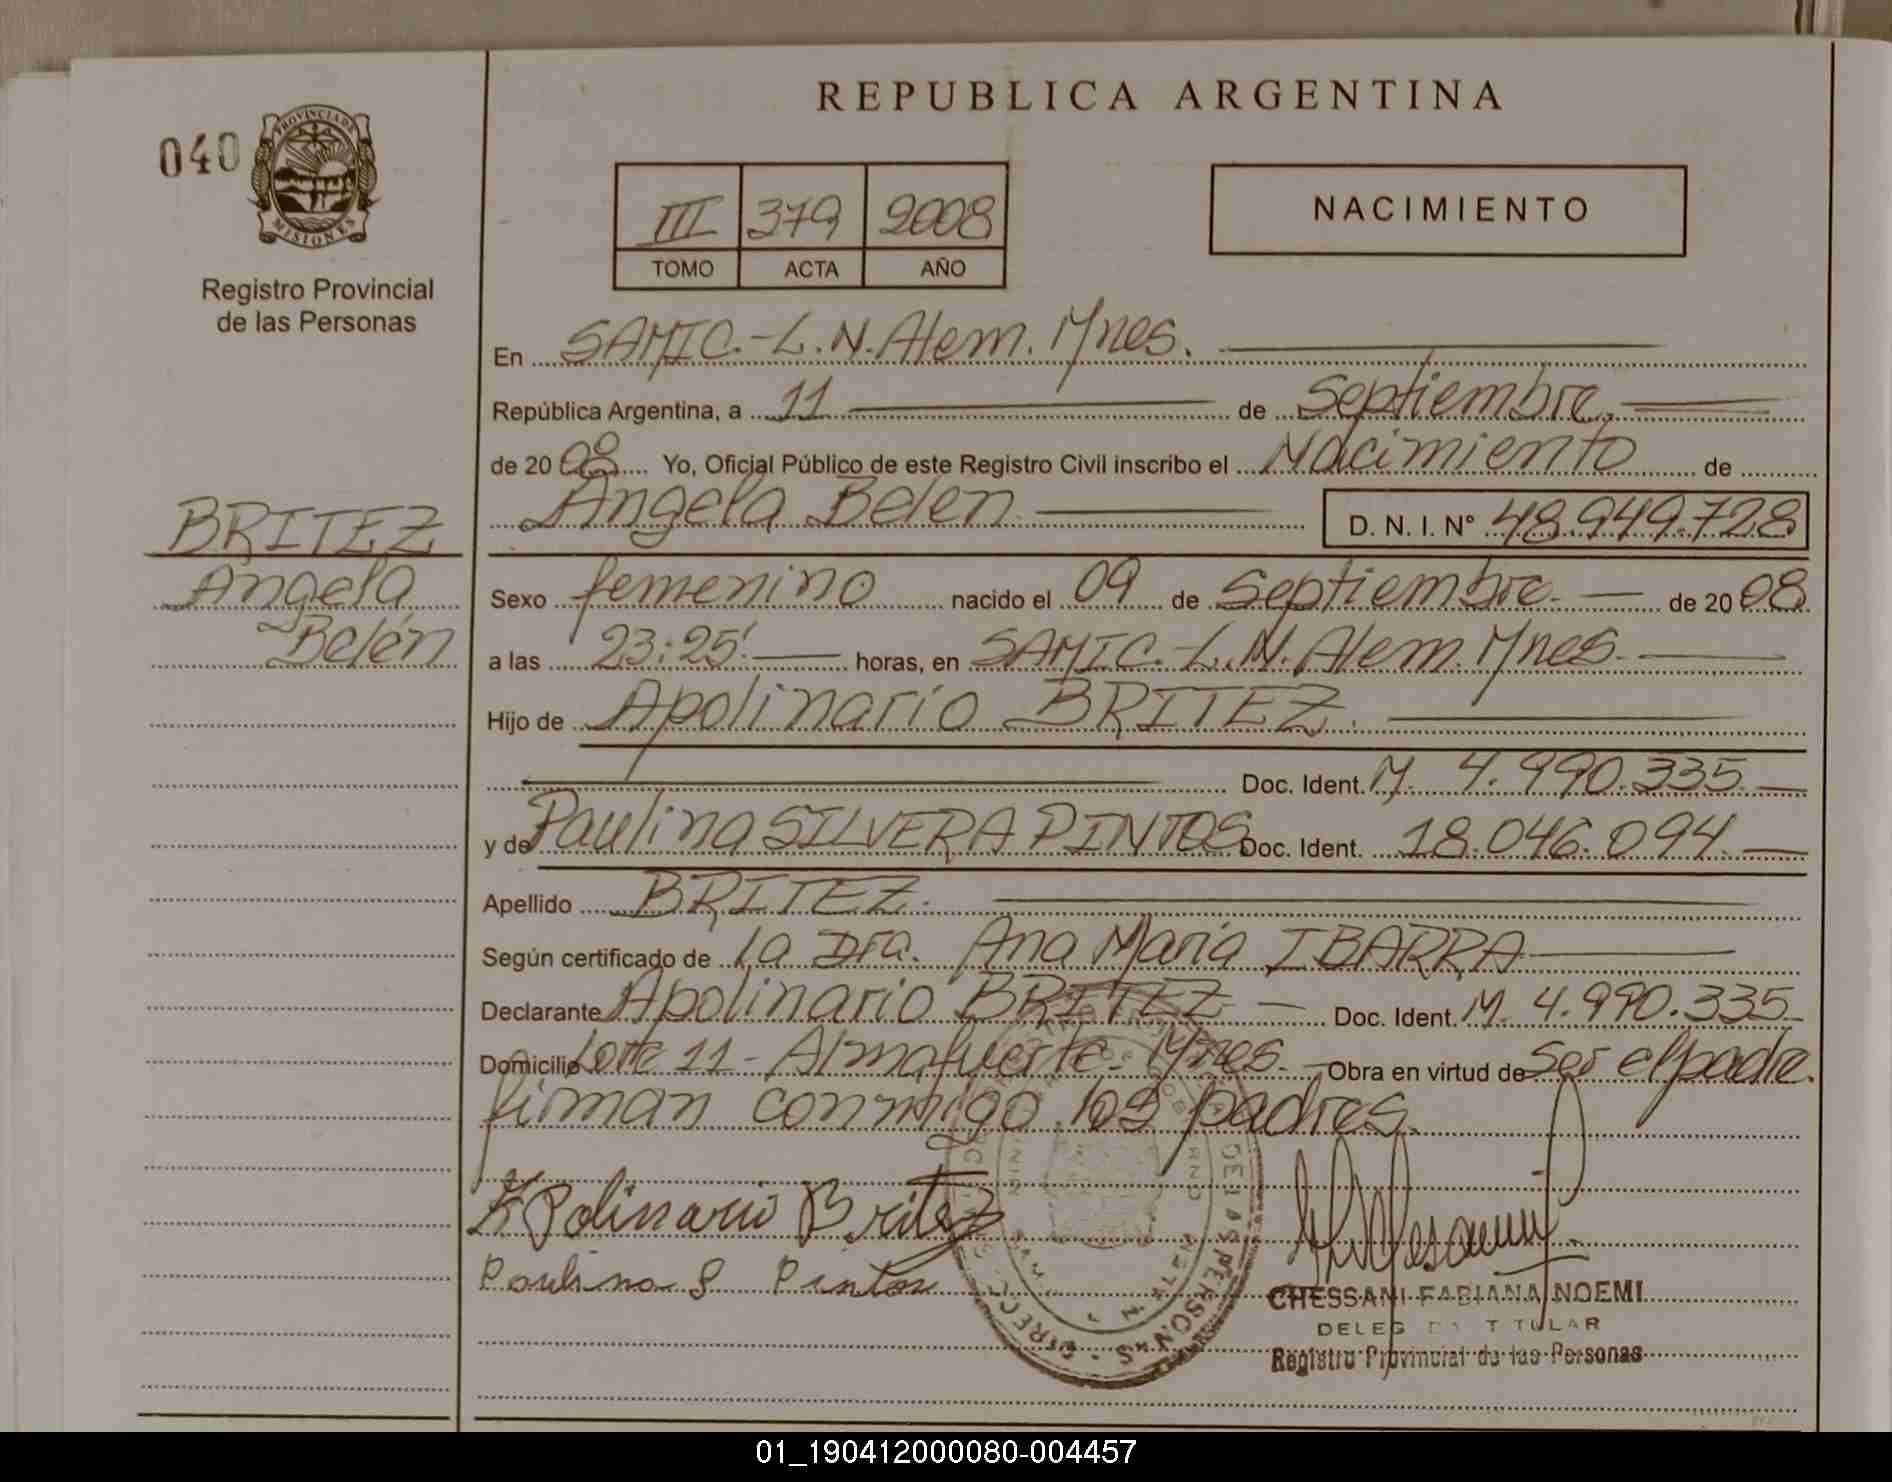 REPUBLICA ARGENTINA
040
PROVINCIA DE
MISIONES
Registro Provincial
de las Personas
III 379 2008
TOMO ACTA AÑO
NACIMIENTO
En SAMIC.-L.N.Alem. Mnes.
República Argentina, a 11 de Septiembre
de 2008 Yo, Oficial Público de este Registro Civil inscribo el Nacimiento de
Angela Belen D. N. I. N° 48.949.728
BRITEZ
Angela
Belén
Sexo femenino nacido el 09 de Septiembre. de 2008
a las 23:25' horas, en SAMIC.-L.N. Alem. Mnes.
Hijo de Apolinario BRITEZ.
Doc. Ident. M. 4.990.335
y de Paulina SILVERA PINTOS Doc. Ident. 18.046.094
Apellido BRITEZ.
Según certificado de la Dra. Ana María IBARRA
Declarante Apolinario BRITEZ Doc. Ident. M. 4.990.335
Domicilio Lote 11 - Almafuerte. Mnes. Obra en virtud de Ser el padre.
firman conmigo los padres.
Apolinario Britez
Paulina S Pintos
DE LAS PERSONAS
CHESSANI FABIANA NOEMI
TITULAR
Registro Provincial de las Personas
01_190412000080-004457